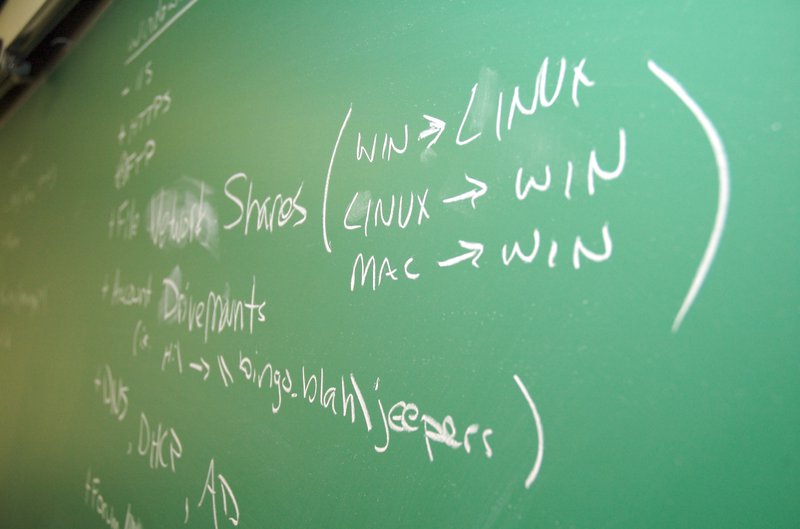 Windows
- IS
+ HTTPS
+ FTP
+ File Network Shares ( WIN → LINUX
LINUX → WIN
MAC → WIN )
+ Drivemounts
(ie H:\ → \\bingo.blah\jeepers )
+ DNS
, DHCP
, AD